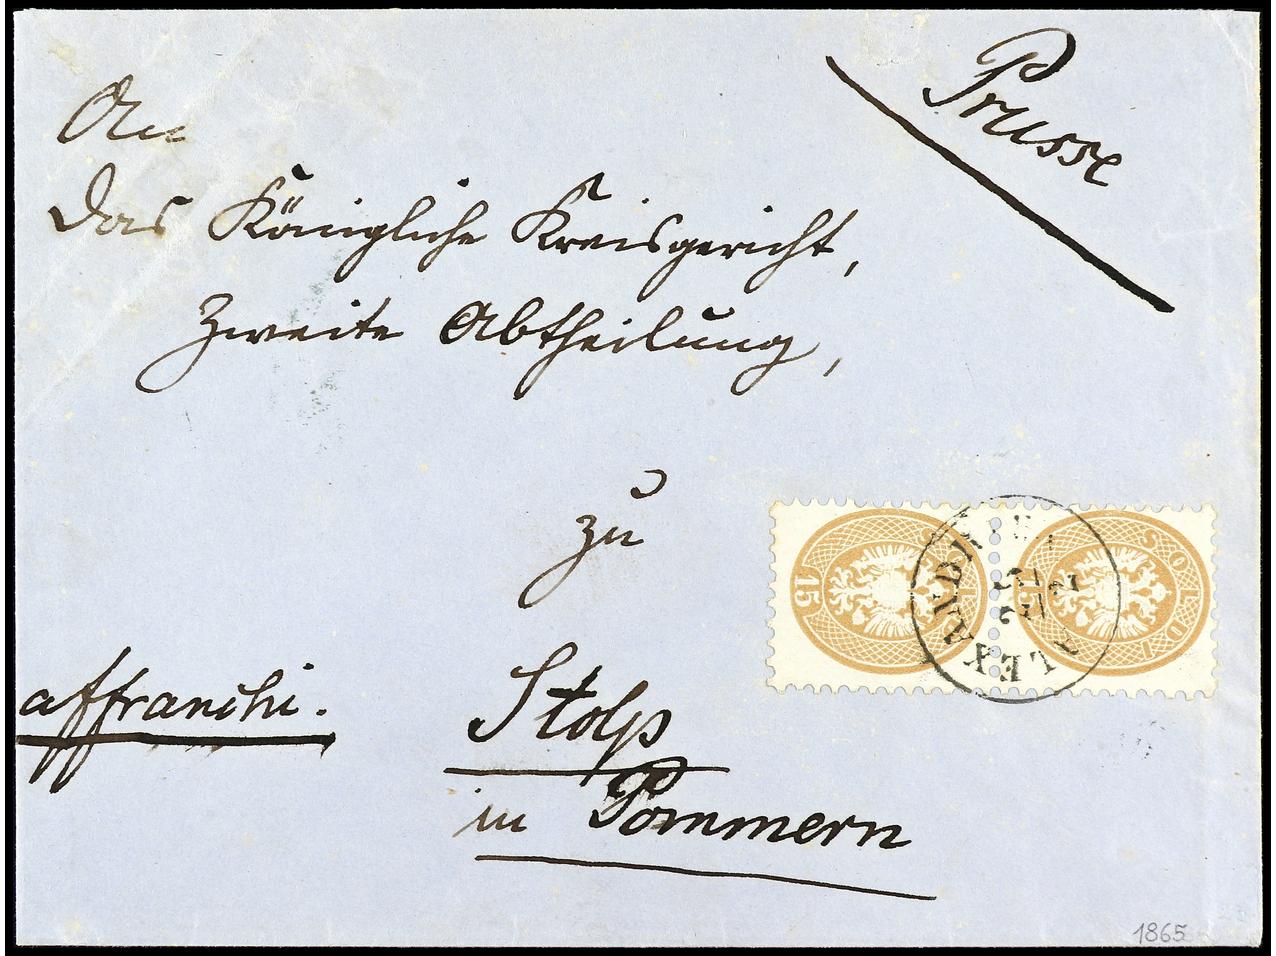 Prusse
An
das Königliche Kreisgericht,
Zweite Abtheilung,
zu
Stolp
in Pommern
affranchi.
15 SOLDI
15 SOLDI
ALEXANDRIEN
25/2
1865